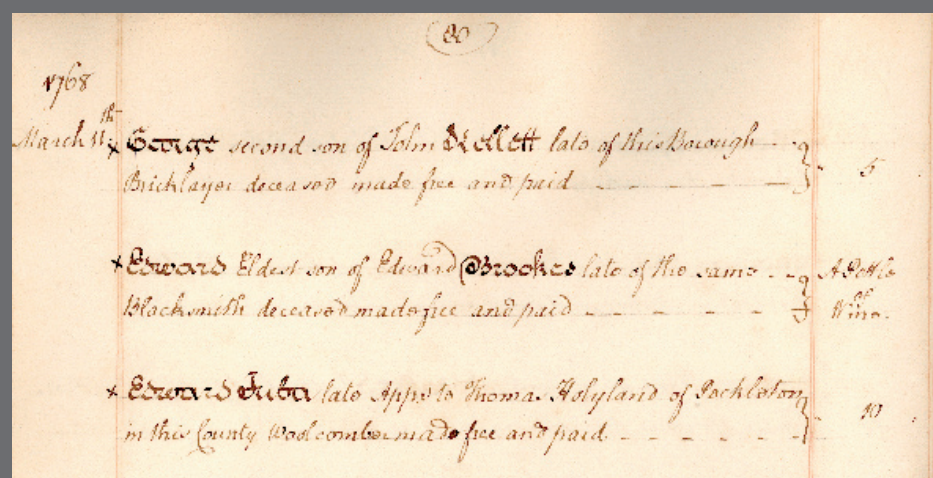 80
1768
March 11th George second son of John Kellett late of this Borough
Bricklayer deceased made free and paid 5
Edward Eldest son of Edward Brookes late of the same A Pottle
of
Blacksmith deceased made free and paid Wine.
Edward Juba late Appre to Thomas Holyland of Peckleton
in this County Woolcomber made free and paid 10